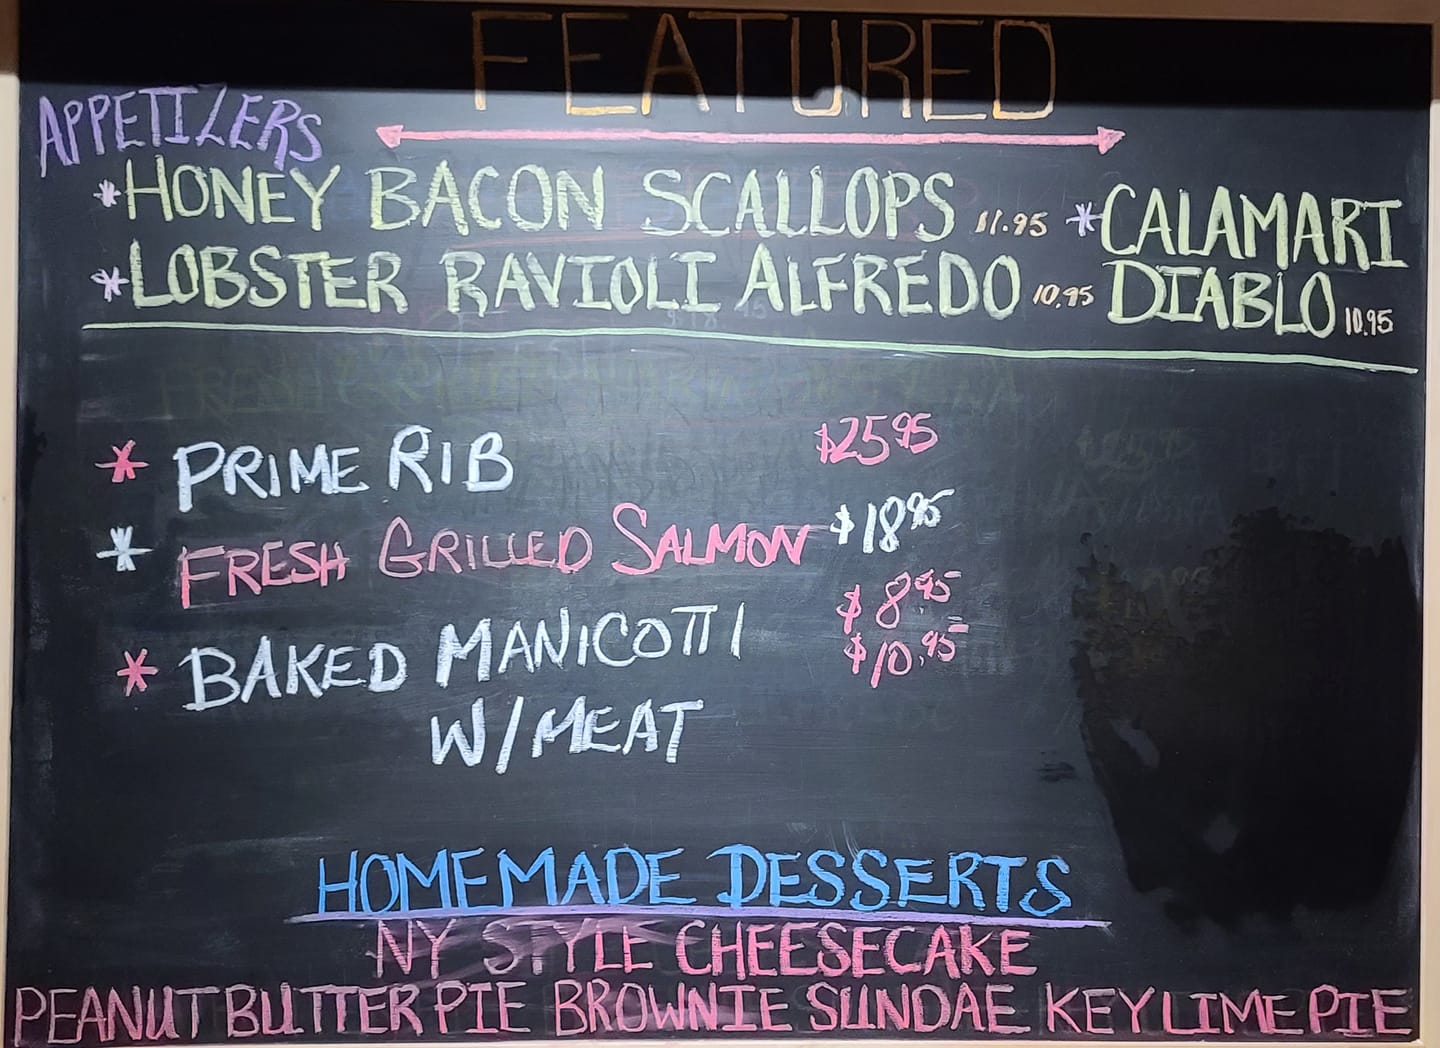 FEATURED
APPETIZERS
*HONEY BACON SCALLOPS 11.95
*LOBSTER RAVIOLI ALFREDO 10.95
*CALAMARI
DIABLO 10.95
* PRIME RIB $25.95
* FRESH GRILLED SALMON $18.95
* BAKED MANICOTTI $8.95
W/MEAT $10.95
HOMEMADE DESSERTS
NY STYLE CHEESECAKE
PEANUT BUTTER PIE BROWNIE SUNDAE KEY LIME PIE